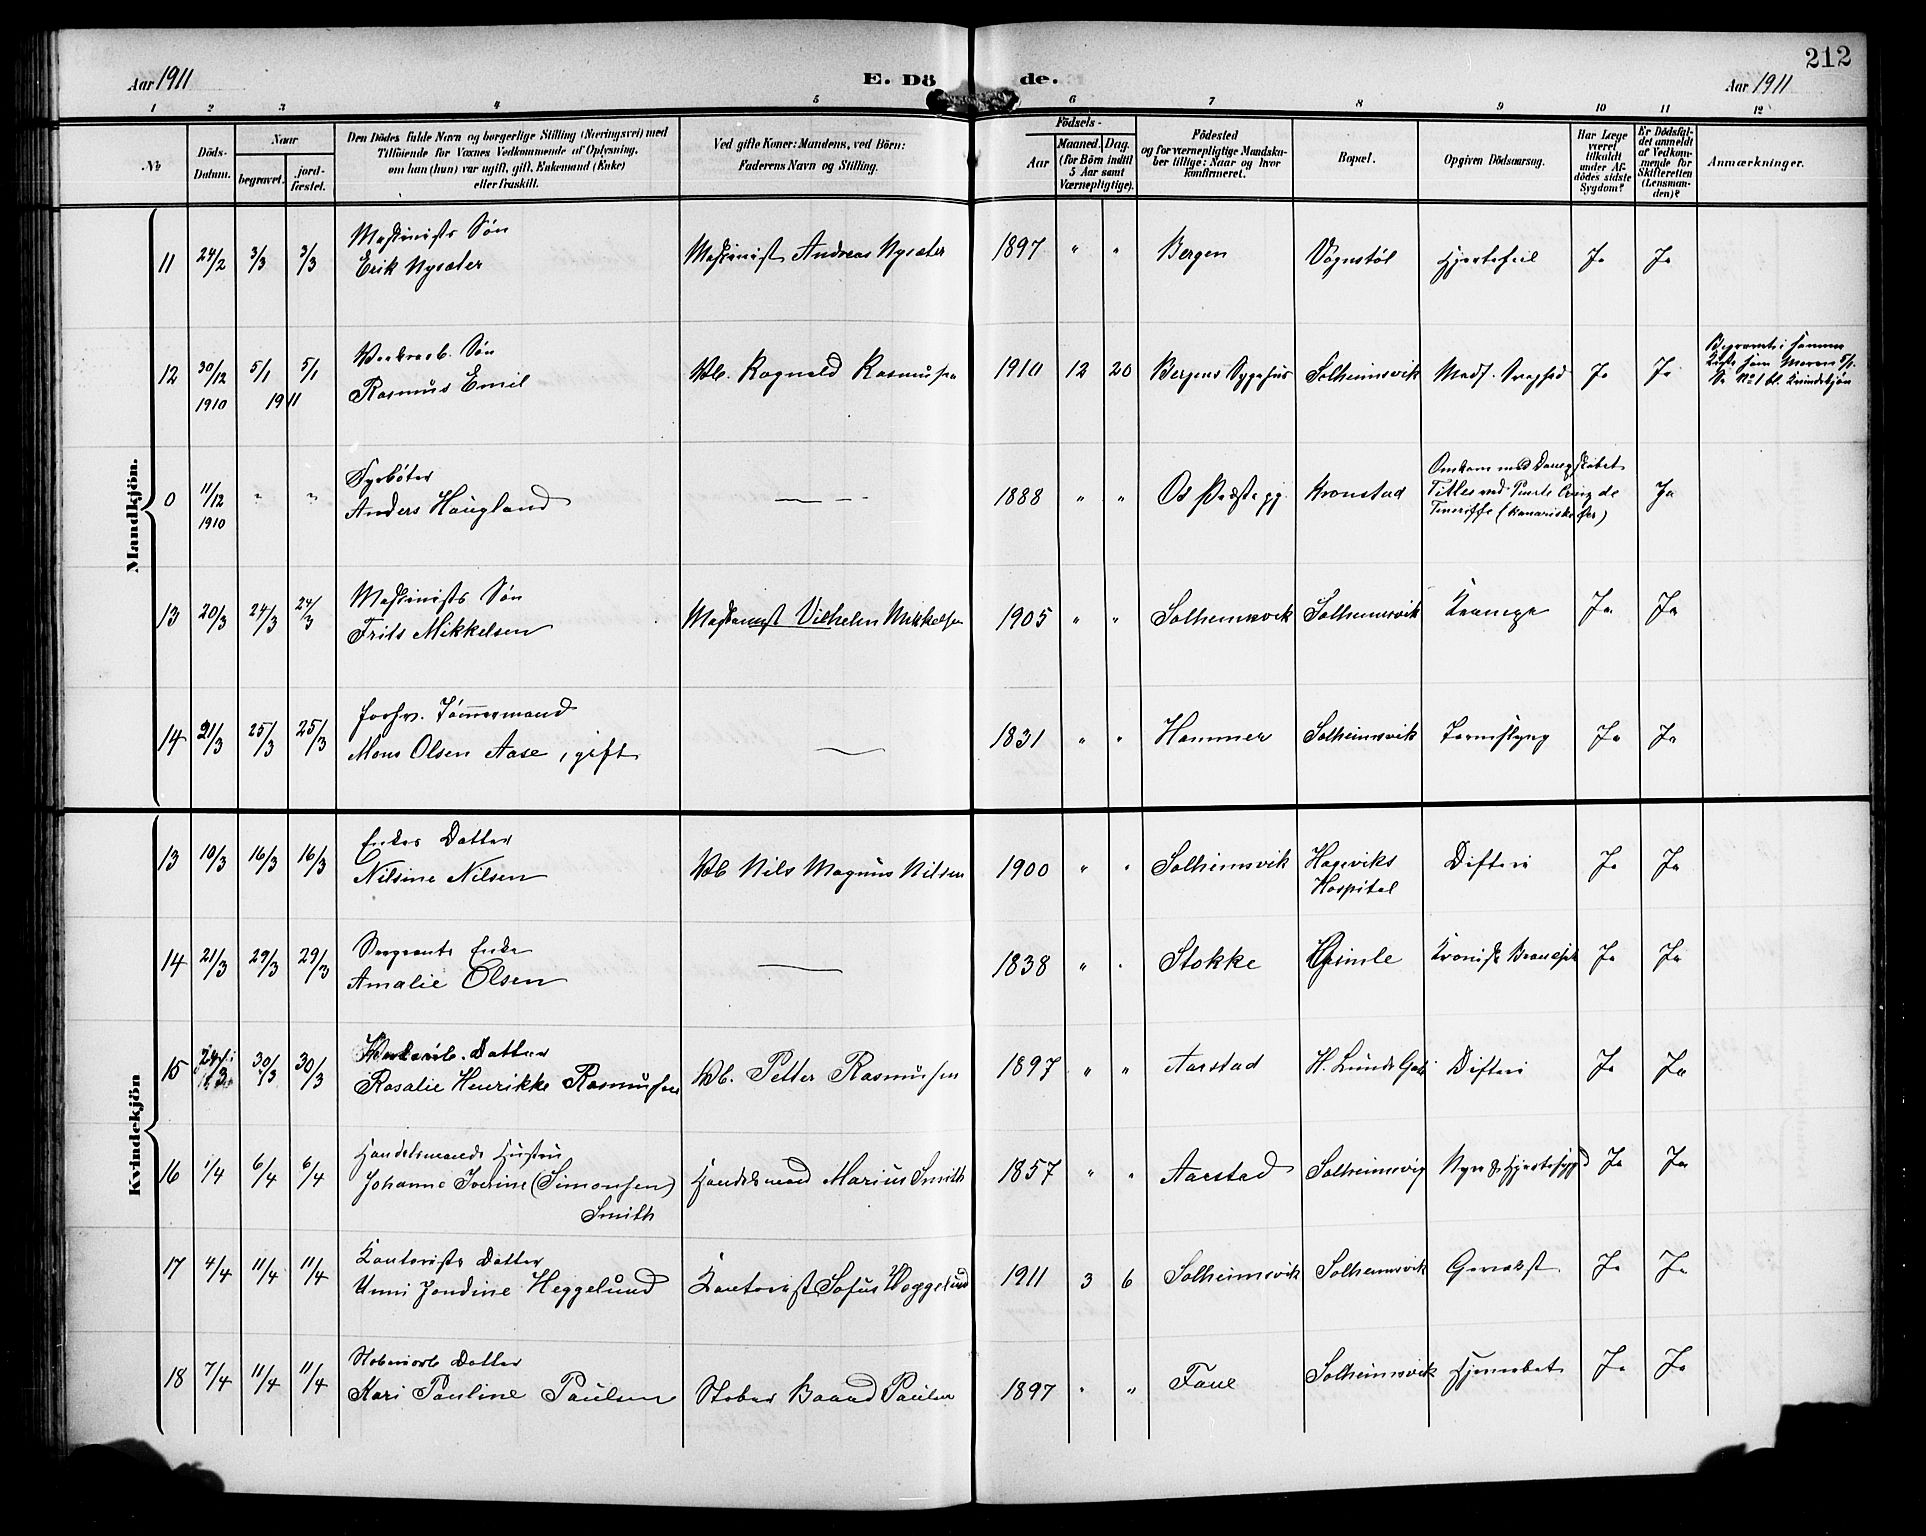 212
Aar 1911
E. Dö de.
Aar 1911
1 2 3 4 5 6 7 8 9 10 11 12
No
Döds-
Datum.
Naar
begravet.
jord-
fæstet.
Den Dödes fulde Navn og borgerlige Stilling (Næringsvei) med
Tilföiende for Voxnes Vedkommende af Oplysning,
om han (hun) var ugift, gift, Enkemand (Enke)
eller fraskilt.
Ved gifte Koner: Mandens, ved Börn:
Faderens Navn og Stilling.
Födsels-
Aar
Maaned. Dag.
(for Börn indtil
5 Aar samt
Værnepligtige).
Födested
og for værnepligtige Mandska-
ber tillige: Naar og hvor
konfirmeret.
Bopæl.
Opgiven Dödsaarsag.
Har Læge
været
tilkaldt
under Af-
dödes sidste
Sygdom?
Er Dödsfal-
det anmeldt
af Vedkom-
mende for
Skifteretten
(Lensman-
den)?
Anmærkninger.
Mandkjön.
11 24/2 3/3 3/3 Maskinists Sön
Erik Nysæter
Maskinist Andreas Nysæter 1897 " " Bergen Vognstöl Hjertefeil Ja Ja
12 30/12 1910 5/1 5/1 1911 Sön
Rasmus Emil
Wb. Ragnald Rasmusen 1910 12 20 Bergens Sygehus Solheimsvik Medf. Svaghed Ja Ja
Begravet i samme
Kiste som Moren 5/1.
Se No 1 bl. Kvindekjön
0 11/12 1910 " " Fyrböter
Anders Haugland
— 1888 " " Os Præstegj. Kronstad
Omkom med Dampskibet
Titles ved de
Teneriffe (kanariske Öer) Ja
13 20/3 24/3 24/3 Maskinists Sön
Frits Mikkelsen
Maskinist Vilhelm Mikkelsen 1905 " " Solheimsvik Solheimsvik Krampe Ja Ja
14 21/3 25/3 25/3 forhv. Tömmermand
Mons Olsen Aase, gift
— 1831 " " Hammer Solheimsvik Tarmslyng Ja Ja
Kvindekjön
13 10/3 16/3 16/3 Enkes Datter
Nilsine Nilsen
Wb Nils Magnus Nilsen 1900 " " Solheimsvik Hageviks
Hospital
Difteri Ja Ja
14 21/3 29/3 29/3 Sergeants Enke
Amalie Olsen
— 1838 " " Stokke Gimle Kronisk Ja Ja
15 24/3 30/3 30/3 Datter
Rosalie Henrikke Rasmussen
Wb. Petter Rasmussen 1897 " " Aarstad H. Lunds Difteri Ja Ja
16 1/4 6/4 6/4 Handelsmands Hustru
Johanne (Simonsen)
Smith
Handelsmand Marius Smith 1857 " " Aarstad Solheimsvig Nyre & Hjertesygd Ja Ja
17 4/4 11/4 11/4 Kontorists Datter
Unni Jondine Heggelund
Kontorist Sofus Heggelund 1911 3 6 Solheimsvik Solheimsvik Ja Ja
18 7/4 11/4 11/4 Datter
Kari Pauline Paulsen
Stöber Baard Paulsen 1897 " " Fane Solheimsvik Ja Ja